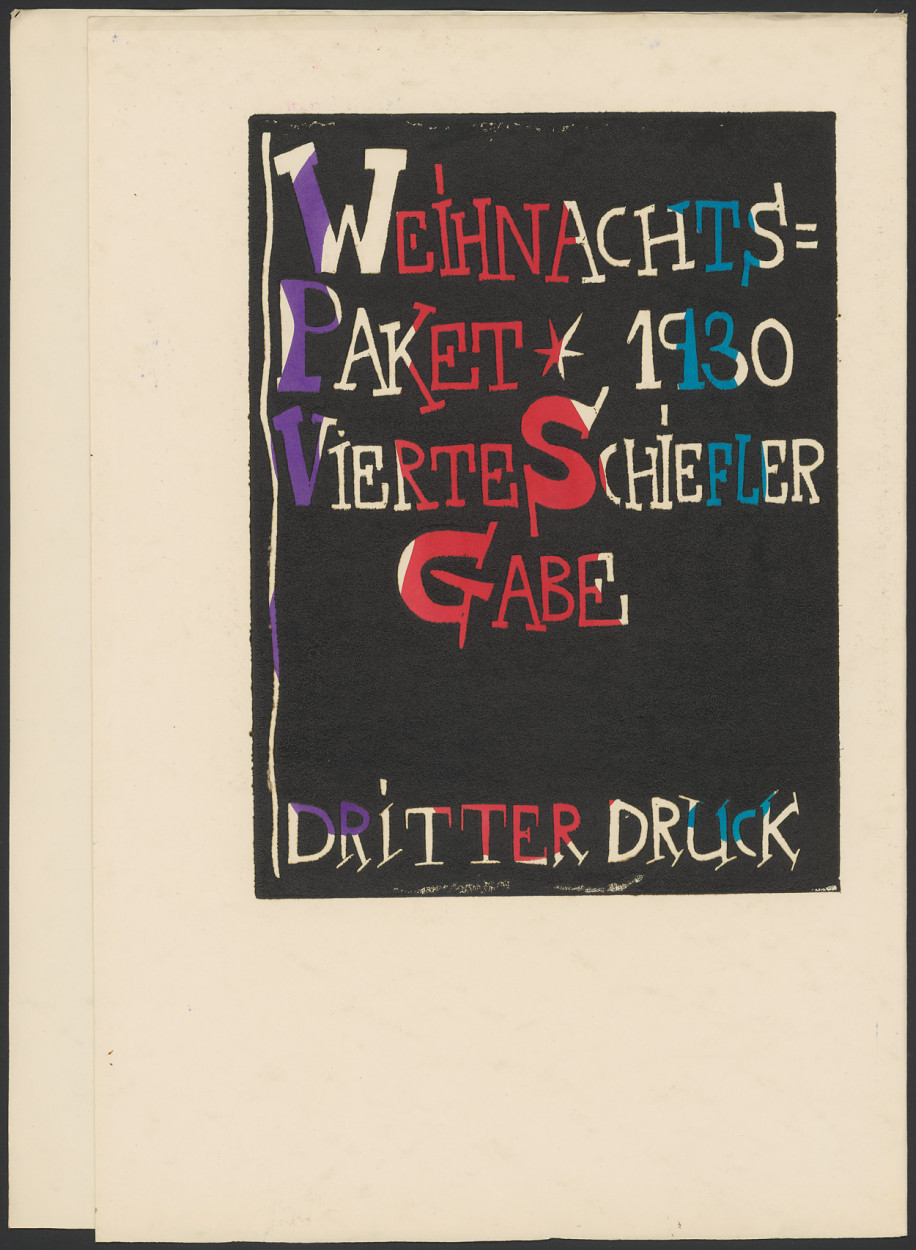 WEIHNACHTS=
PAKET * 1930
VIERTE SCHIEFLER
GABE
DRITTER DRUCK